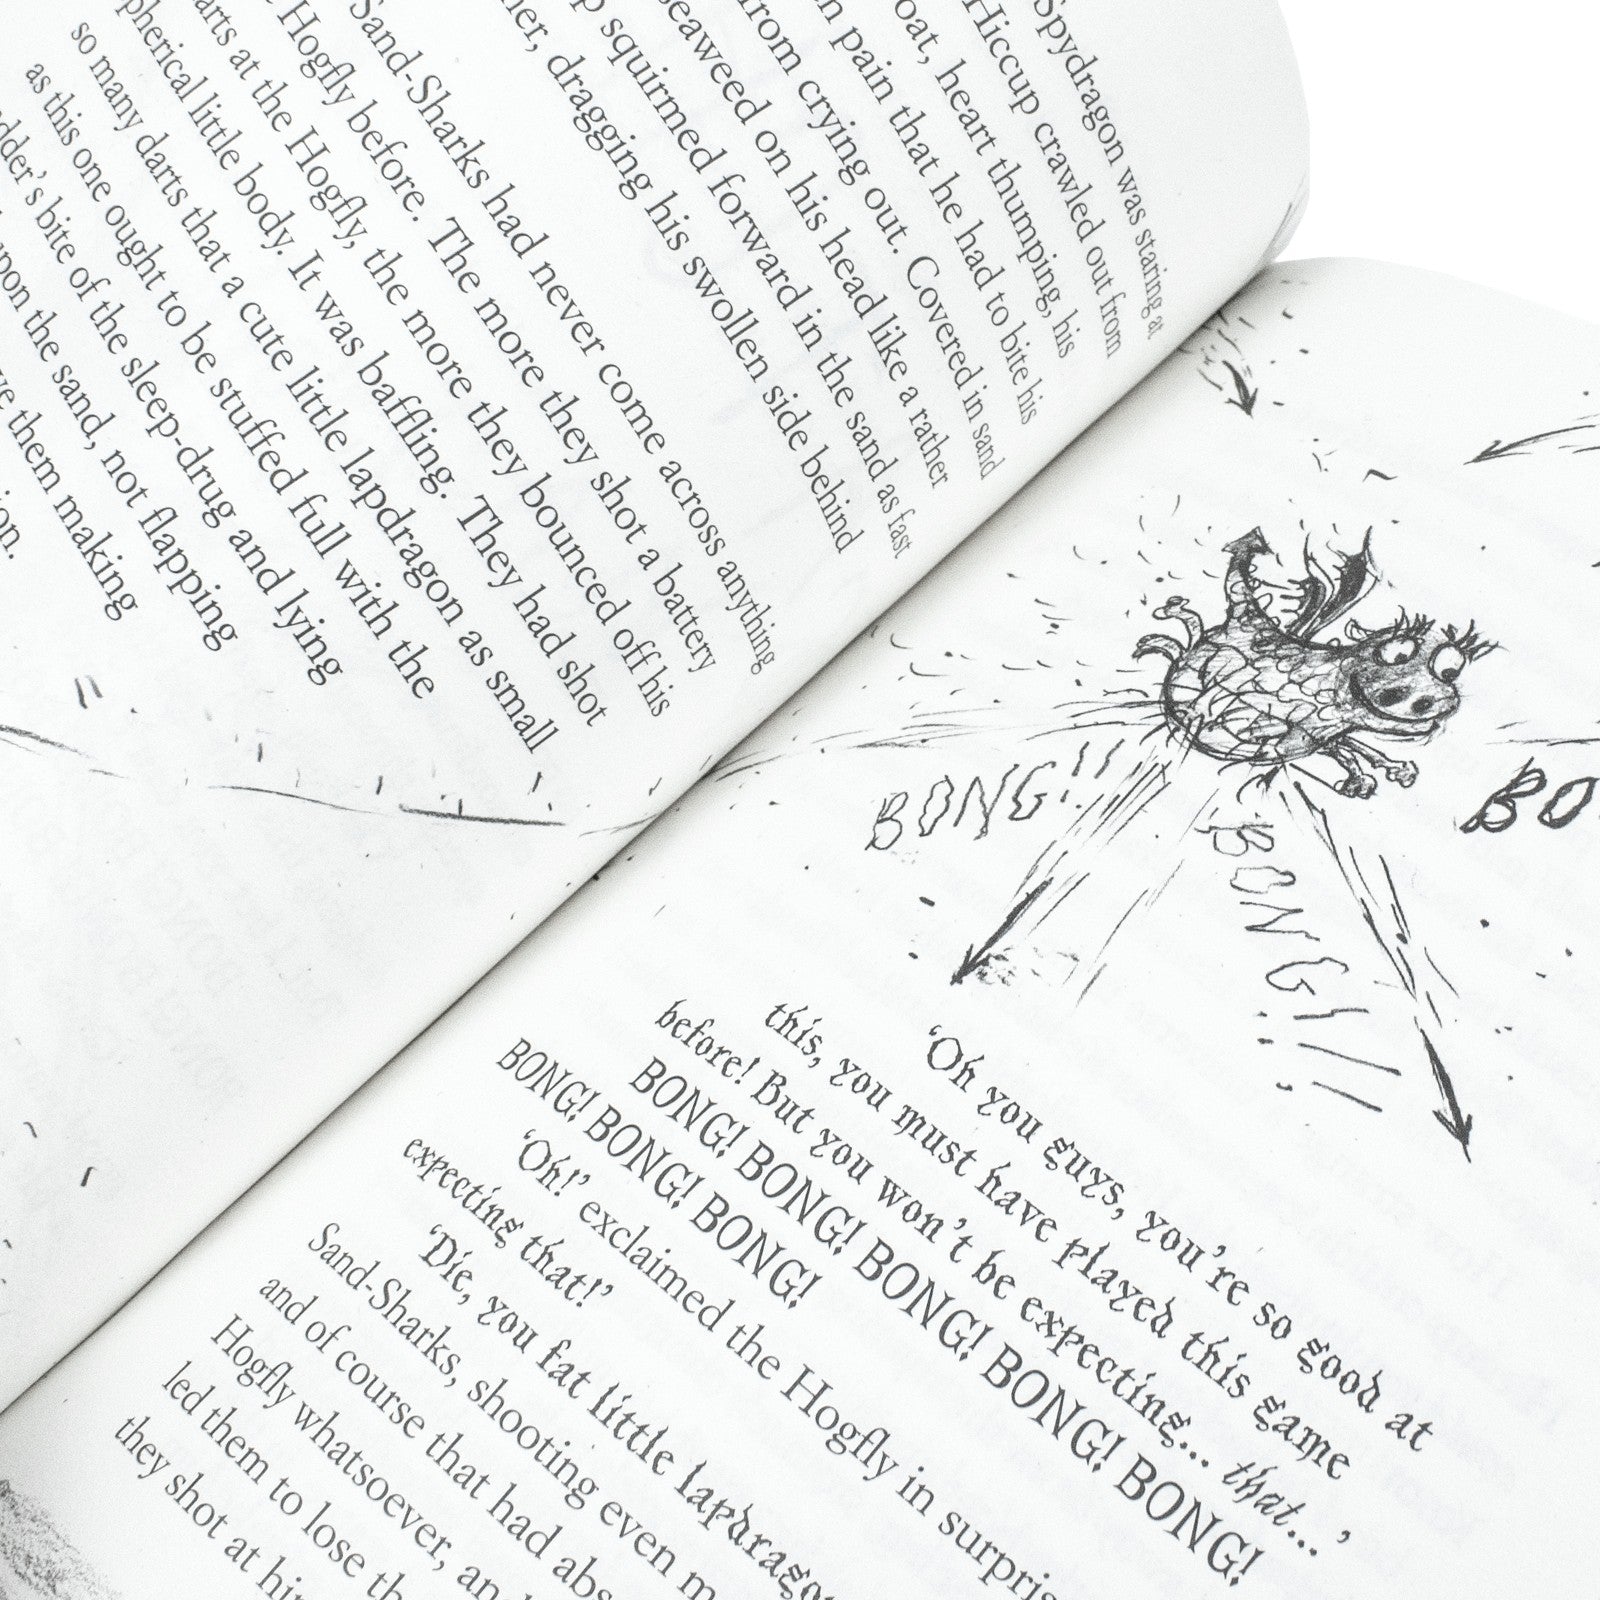 Spydragon was staring at
Hiccup crawled out from
oat, heart thumping, his
n pain that he had to bite his
from crying out. Covered in sand
seaweed on his head like a rather
p squirmed forward in the sand as fast
her, dragging his swollen side behind
Sand-Sharks had never come across anything
Hogfly before. The more they shot a battery
arts at the Hogfly, the more they bounced off his
pherical little body. It was baffling. They had shot
so many darts that a cute little lapdragon as small
as this one ought to be stuffed full with the
dder's bite of the sleep-drug and lying
upon the sand, not flapping
ve them making
ion.
BONG!!
BONG!!
BO
'Oh you guys, you're so good at
this, you must have played this game
before! But you won't be expecting... that...'
BONG! BONG! BONG! BONG! BONG!
BONG! BONG! BONG!
'Oh!' exclaimed the Hogfly in surpris
expecting that!'
'Die, you fat little lapdrago
Sand-Sharks, shooting even m
and of course that had abs
Hogfly whatsoever, and
led them to lose th
they shot at hi